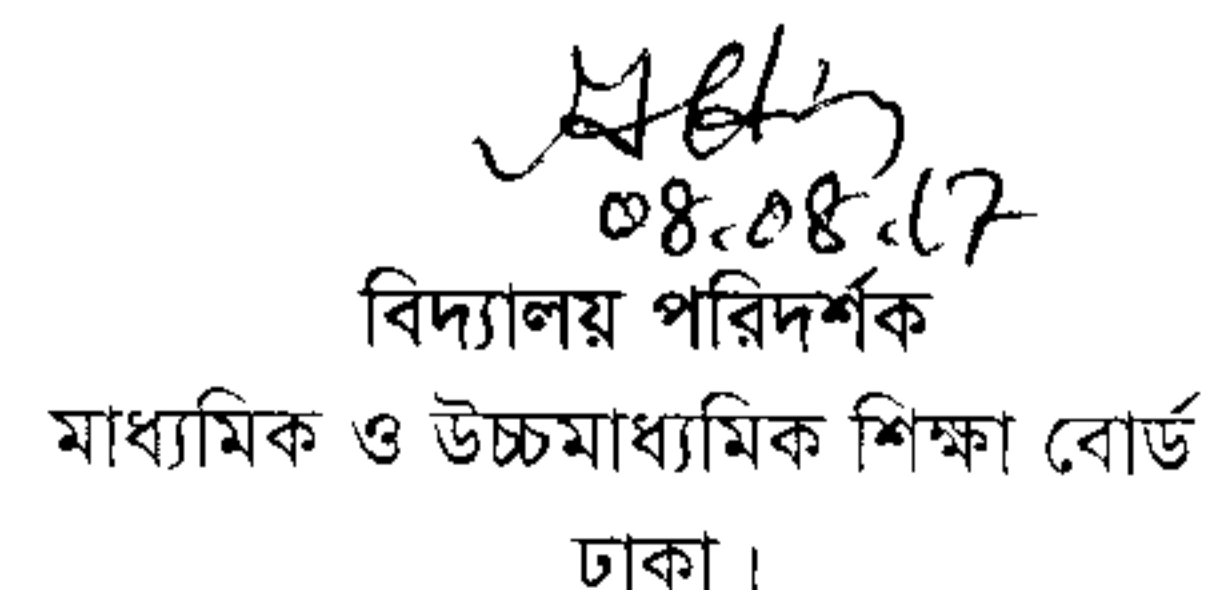 08.08.17
বিদ্যালয় পরিদর্শক
মাধ্যমিক ও উচ্চমাধ্যমিক শিক্ষা বোর্ড
ঢাকা।